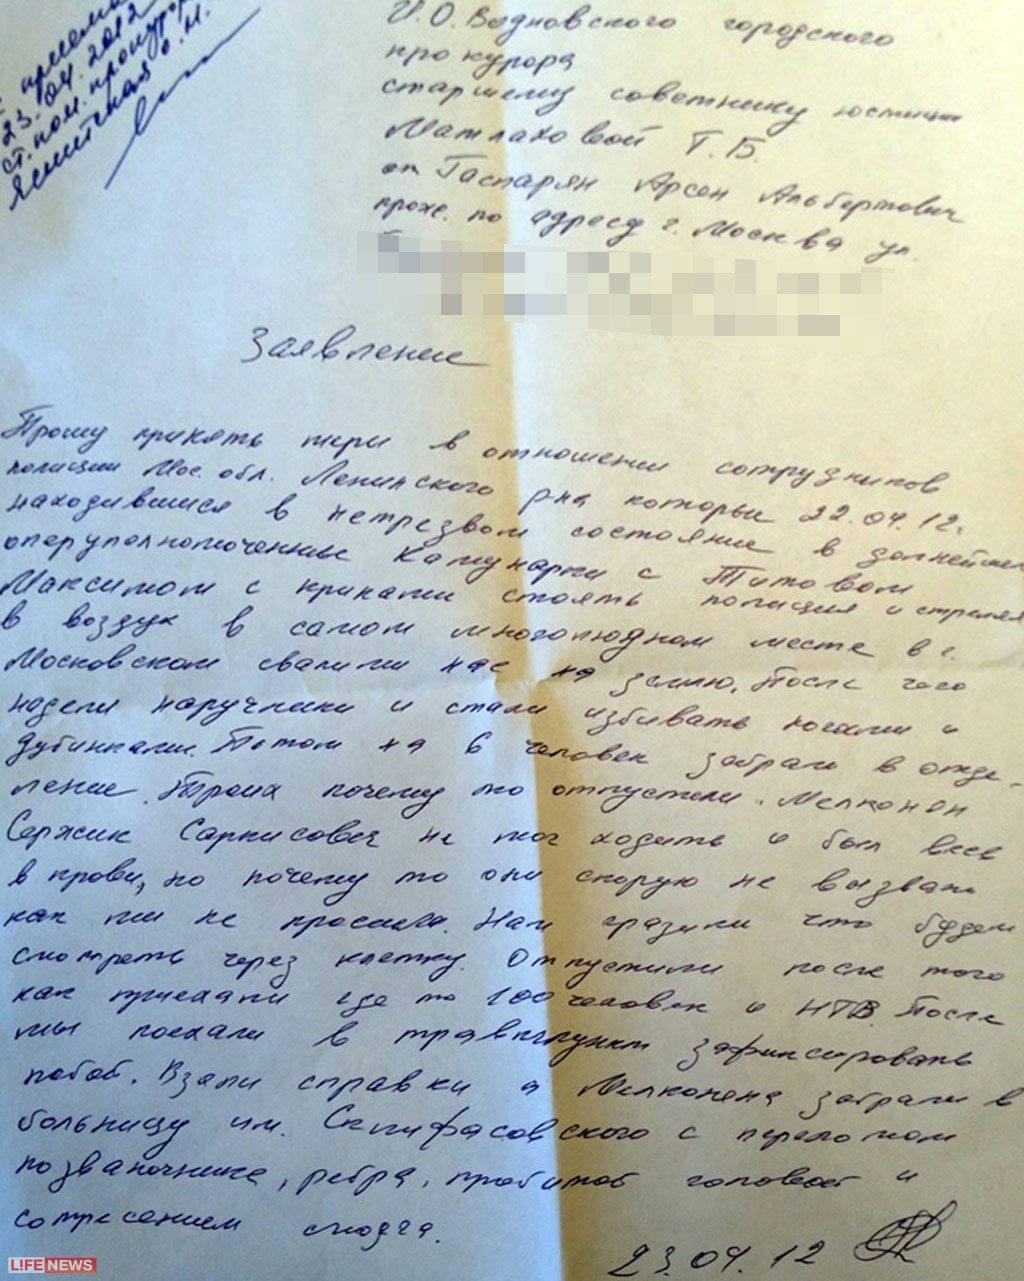 приема
23.04.2012
ст. пом. прокурора
И.О. Видновского городского
прокурора
старшему советнику юстиции
Матлаховой Т.Б.
от Гаспарян Арсен Альбертович
прож. по адресу г. Москва ул.
Заявление
Прошу принять меры в отношении сотрудников
полиции Мос. обл. Ленинского р-на которые 22.04.12г.
находившиеся в нетрезвом состояние в
оперуполномоченные Камунарки с Титовом
Максимом с криками стоять полиция и стреляя
в воздух в самом многолюдном месте в г.
Московском свалили нас на землю. После чего
надели наручники и стали избивать ногами и
дубинками. Потом на 6 человек забрали в отде-
ление. Троих почему то отпустили. Мелконян
Сержик Саркисовеч не мог ходить и был весь
в крови, но почему то они скорую не вызвали
как мы не просили. Нам гразили что будем
смотреть через клетку. Отпустили после того
как приехали где то 100 человек и НТВ. После
мы поехали в травмпункт зафиксировать
побоб. Взяли справки а Мелконена забрали в
больницу им. Склифасовского с переломом
позваночника, ребра, пробитой головой и
сотресением моздга.
23.04.12
L!FE NEWS